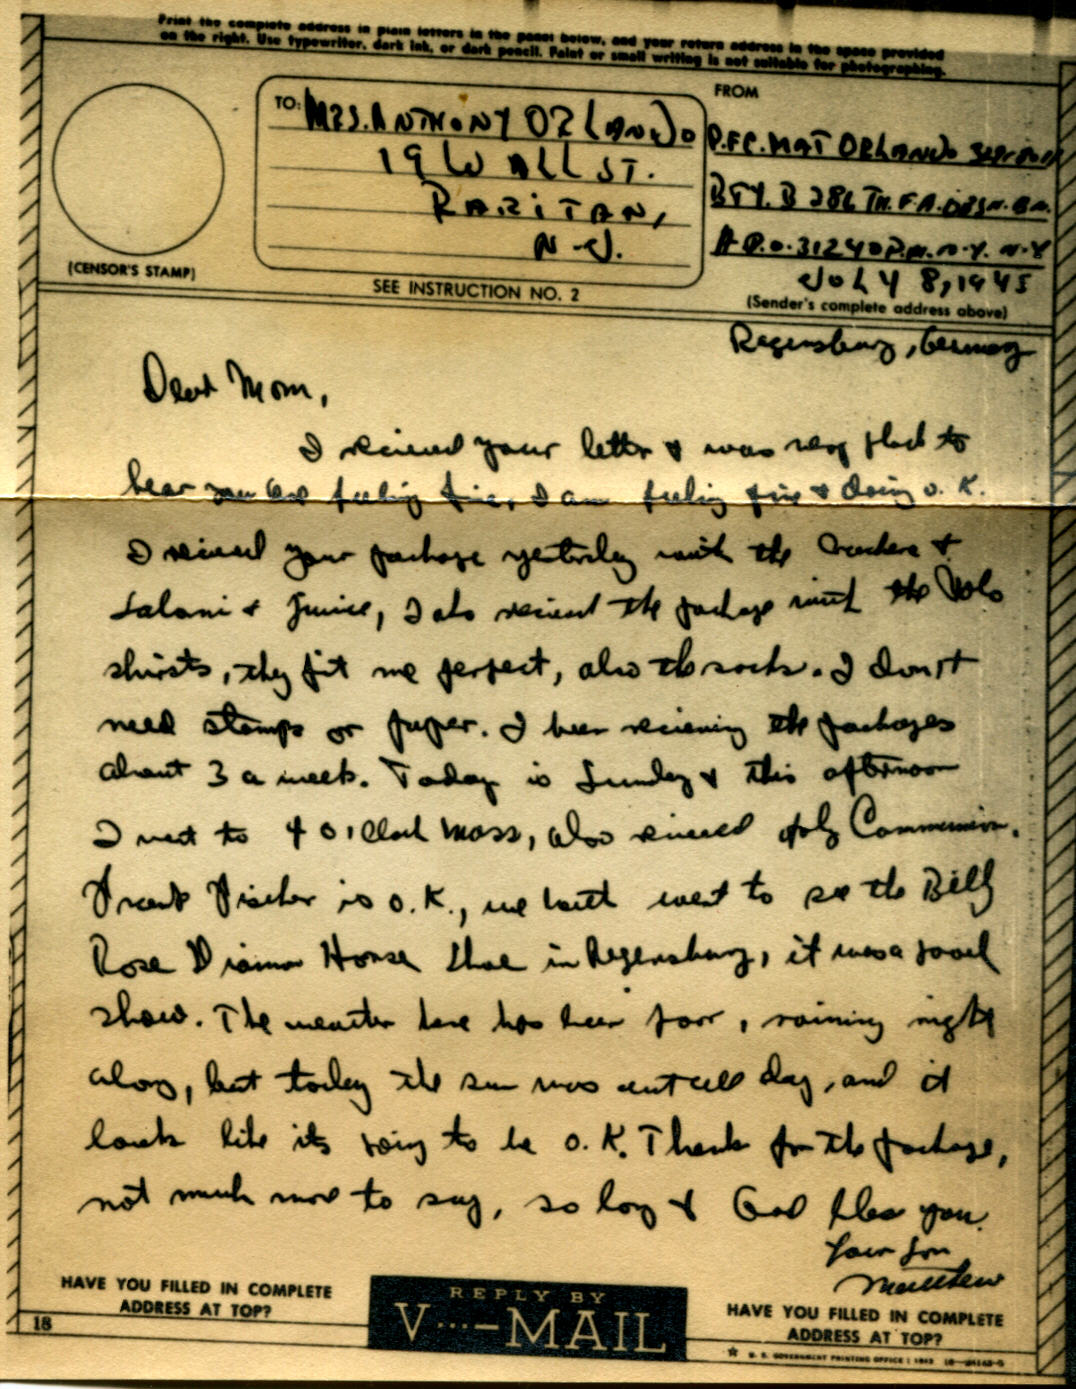 Print the complete address in plain letters in the panel below, and your return address in the space provided
on the right. Use typewriter, dark ink, or dark pencil. Faint or small writing is not suitable for photographing.
FROM
TO: MRS. ANTHONY ORLANDO
19 WALL ST.
RARITAN,
N.J.
P.F.C. MAT ORLANDO
BTY. B 286 TH. F.A. OBSN. BN.
A.P.O. 312 % P.M. N.Y. N.Y
JULY 8, 1945
(CENSOR'S STAMP)
SEE INSTRUCTION NO. 2
(Sender's complete address above)
Regensburg, Germany
Dear Mom,
I recieved your letter & was very glad to
hear you are feeling fine, I am feeling fine & doing O.K.
I recieved your package yesterday with the Crackers &
Salami & Juice, I also recieved the package with the Polo
shirts, they fit me perfect, also the socks. I don't
need stamps or paper. I been recieving the packages
about 3 a week. Today is Sunday & this afternoon
I went to 4 o'clock Mass, also recieved Holy Communion.
Frank Fischer is O.K., we both went to see the Billy
Rose Diamon Horse Shoe in Regensburg, it was a good
show. The weather here has been poor, raining right
along, but today the sun was out all day, and it
looks like its going to be O.K. Thanks for the package,
not much more to say, so long & God bless you.
Your Son
Matthew
HAVE YOU FILLED IN COMPLETE
ADDRESS AT TOP?
REPLY BY
V···—MAIL
HAVE YOU FILLED IN COMPLETE
ADDRESS AT TOP?
18
☆ U. S. GOVERNMENT PRINTING OFFICE : 1943